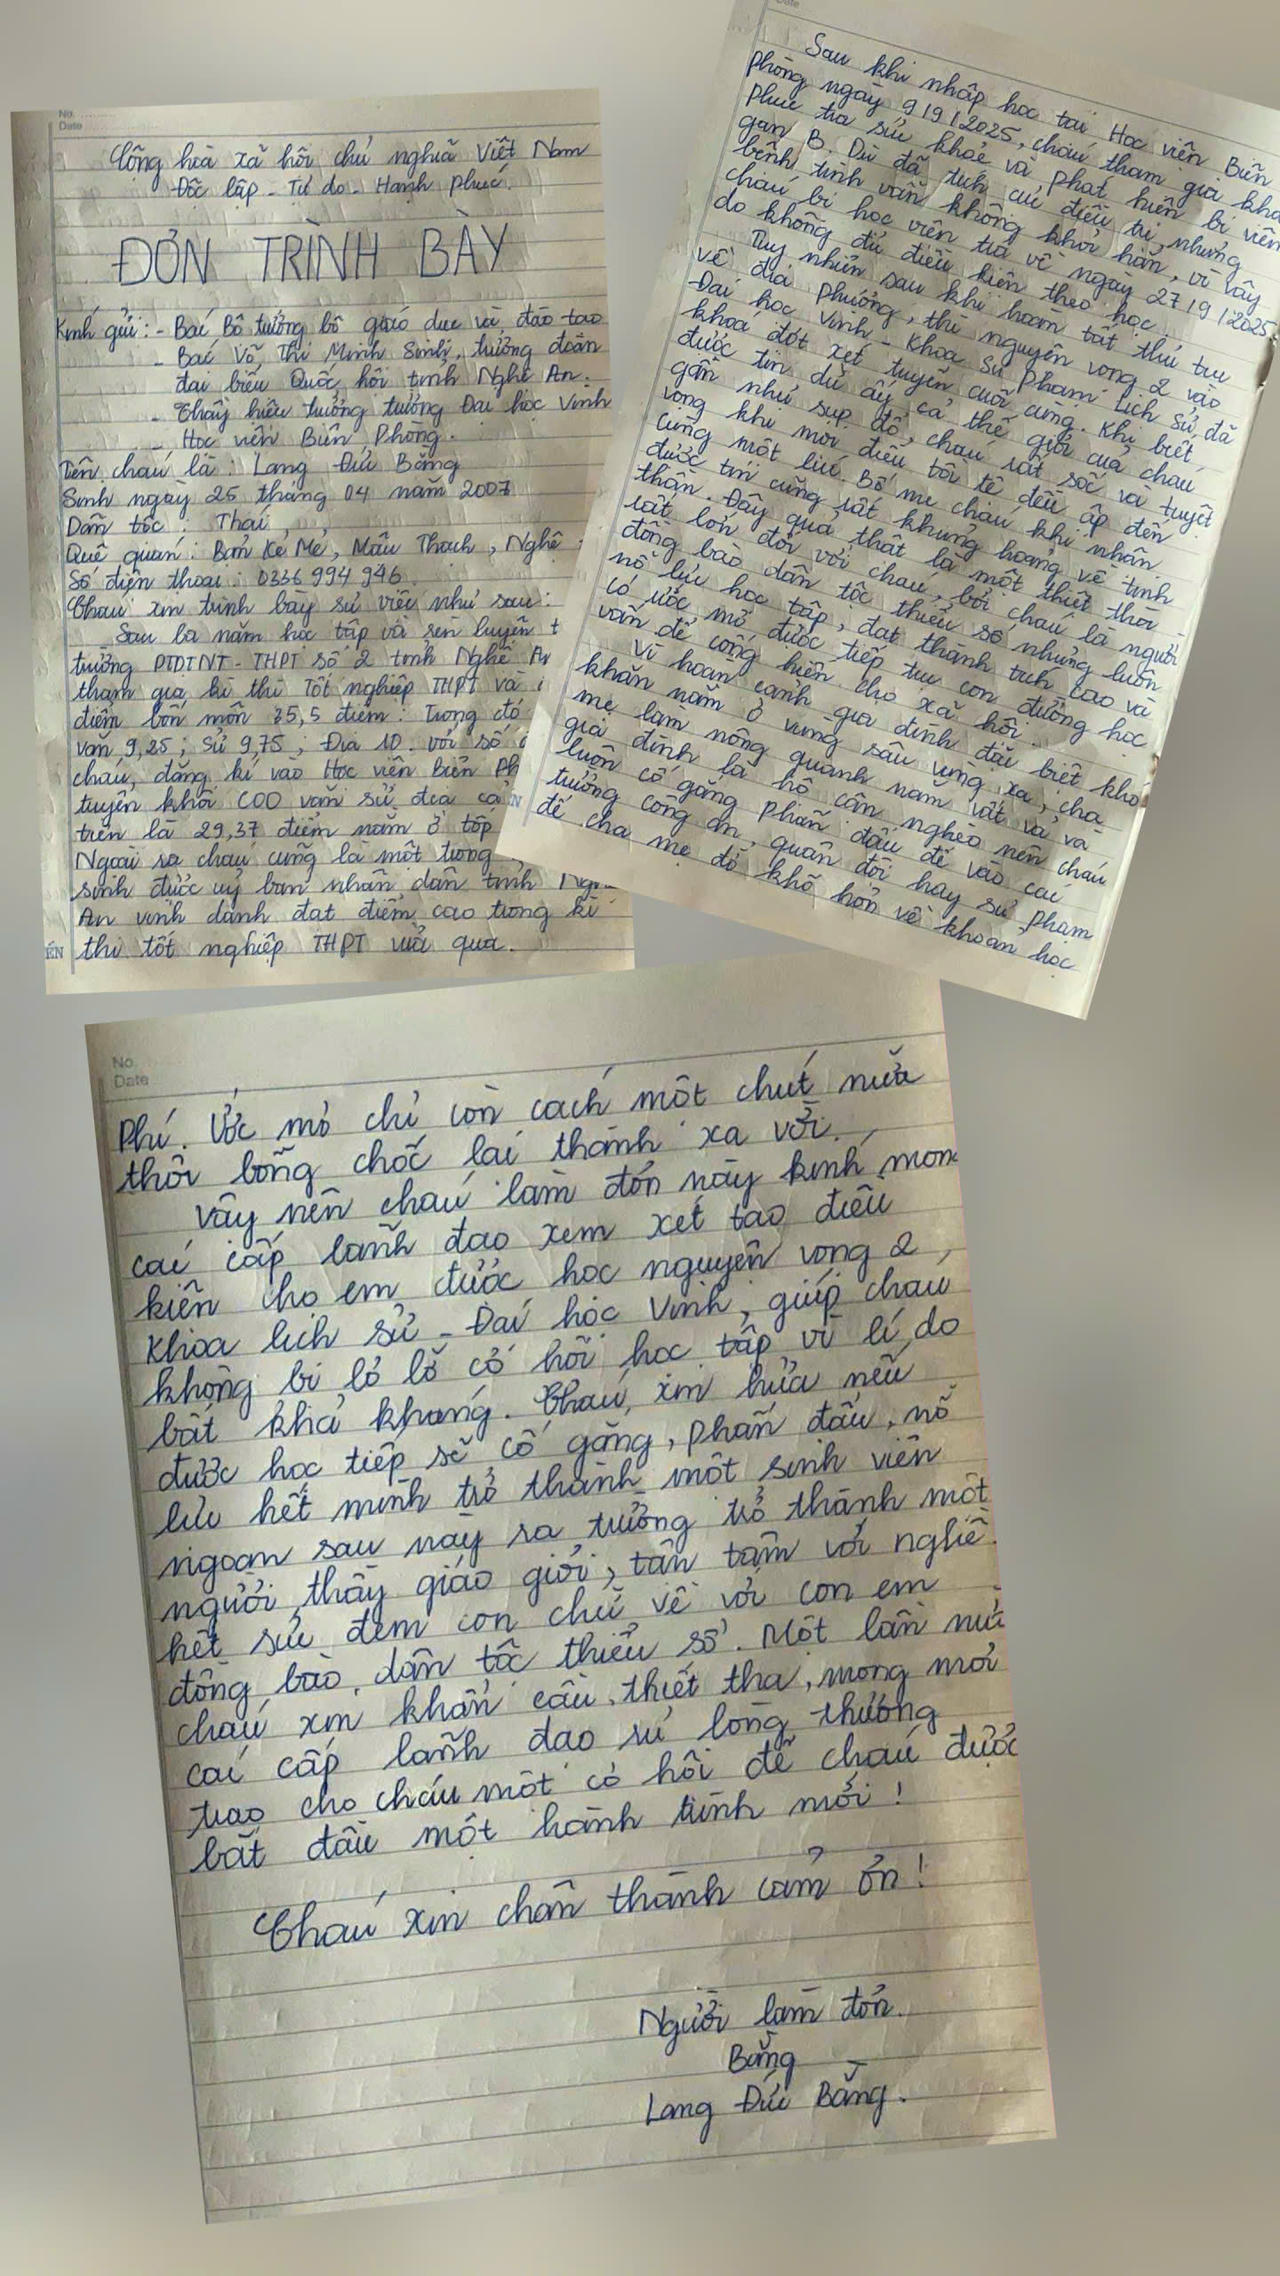 No.
Date
Cộng hoà xã hội chủ nghĩa Việt Nam
Độc lập - Tự do - Hạnh phúc.
ĐƠN TRÌNH BÀY
Kính gửi: - Bác Bộ trưởng bộ giáo dục và đào tạo
- Bác Võ Thị Minh Sinh, trưởng đoàn
đại biểu Quốc hội tỉnh Nghệ An.
- Thầy hiệu trưởng trường Đại học Vinh
- Học viện Biên Phòng.
Tên cháu là: Lang Đức Bằng
Sinh ngày 25 tháng 04 năm 2007
Dân tộc: Thái
Quê quán: Bản Kẻ Mẻ, Mậu Thạch, Nghệ
Số điện thoại: 0336 994 946.
Cháu xin trình bày sự việc như sau:
Sau ba năm học tập và rèn luyện t
trường PTDTNT-THPT số 2 tỉnh Nghệ An
tham gia kì thi Tốt nghiệp THPT và
điểm bốn môn 35,5 điểm: Trong đó
văn 9,25; Sử 9,75; Địa 10. với số
cháu, đăng kí vào Học viện Biên Ph
tuyển khối C00 văn sử địa cả
trên là 29,37 điểm nằm ở tốp
Ngoài ra cháu cũng là một trong
sinh được uỷ ban nhân dân tỉnh Ngh
An vinh danh đạt điểm cao trong kì
thi tốt nghiệp THPT vừa qua.
ẾN
Date
Sau khi nhập học tại Học viện Biên
phòng ngày 9/9/2025, cháu tham gia khá
phúc tra sức khoẻ và phát hiện bị viêm
gan B. Dù đã tích cực điều trị, nhưng
bệnh tình vẫn không khỏi hẳn, vì vậy
cháu bị học viện trả về ngày 27/9/2025,
do không đủ điều kiện theo học.
Tuy nhiên sau khi hoàn tất thủ tục
về địa phương, thì nguyện vọng 2 vào
Đại học Vinh - Khoa Sư Phạm Lịch Sử, đã
khoá đợt xét tuyển cuối cùng. Khi biết
được tin dữ ấy, cả thế giới của cháu
gần như sụp đổ, cháu rất sốc và tuyệt
vọng khi mọi điều tồi tệ đều ập đến
cùng một lúc. Bố mẹ cháu khi nhận
được tin cũng rất khủng hoảng về tinh
thần. Đây quả thật là một thiệt thòi
rất lớn đối với cháu, bởi cháu là người
đồng bào dân tộc thiểu số nhưng luôn
nỗ lực học tập, đạt thành tích cao và
có ước mơ được tiếp tục con đường học
vấn để cống hiến cho xã hội.
Vì hoàn cảnh gia đình đặc biệt khó
khăn nằm ở vùng sâu vùng xa, cha
mẹ làm nông quanh năm vất vả và
gia đình là hộ cận nghèo nên cháu
luôn cố gắng phấn đấu để vào các
trường công an, quân đội hay sư phạm
để cha mẹ đỡ khổ hơn về khoản học
No.
Date
phí. Ước mơ chỉ còn cách một chút nữa
thôi bỗng chốc lại thành xa vời.
Vậy nên cháu làm đơn này kính mong
các cấp lãnh đạo xem xét tạo điều
kiện cho em được học nguyện vọng 2
khoa lịch sử - Đại học Vinh, giúp cháu
không bị lỡ lỡ cơ hội học tập vì lí do
bất khả kháng. Cháu, xin hứa nếu
được học tiếp sẽ cố gắng, phấn đấu, nỗ
lực hết mình trở thành một sinh viên
ngoan sau này ra trường trở thành một
người thầy giáo giỏi, tận tâm với nghề.
hết sức đem con chữ về với con em
đồng bào dân tộc thiểu số. Một lần nữa
cháu xin khẩn cầu, thiết tha, mong mỏi
các cấp lãnh đạo rủ lòng thương
trao cho cháu một cơ hội để cháu được
bắt đầu một hành trình mới!
Cháu xin chân thành cảm ơn!
Người làm đơn.
Bằng
Lang Đức Bằng.